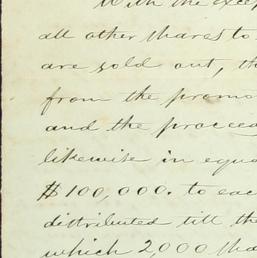 With the excep
all other shares to
are sold out, th
from the promo
and the proceed
likewise in equa
$100,000. to eac
distributed till the
which 2,000 sha